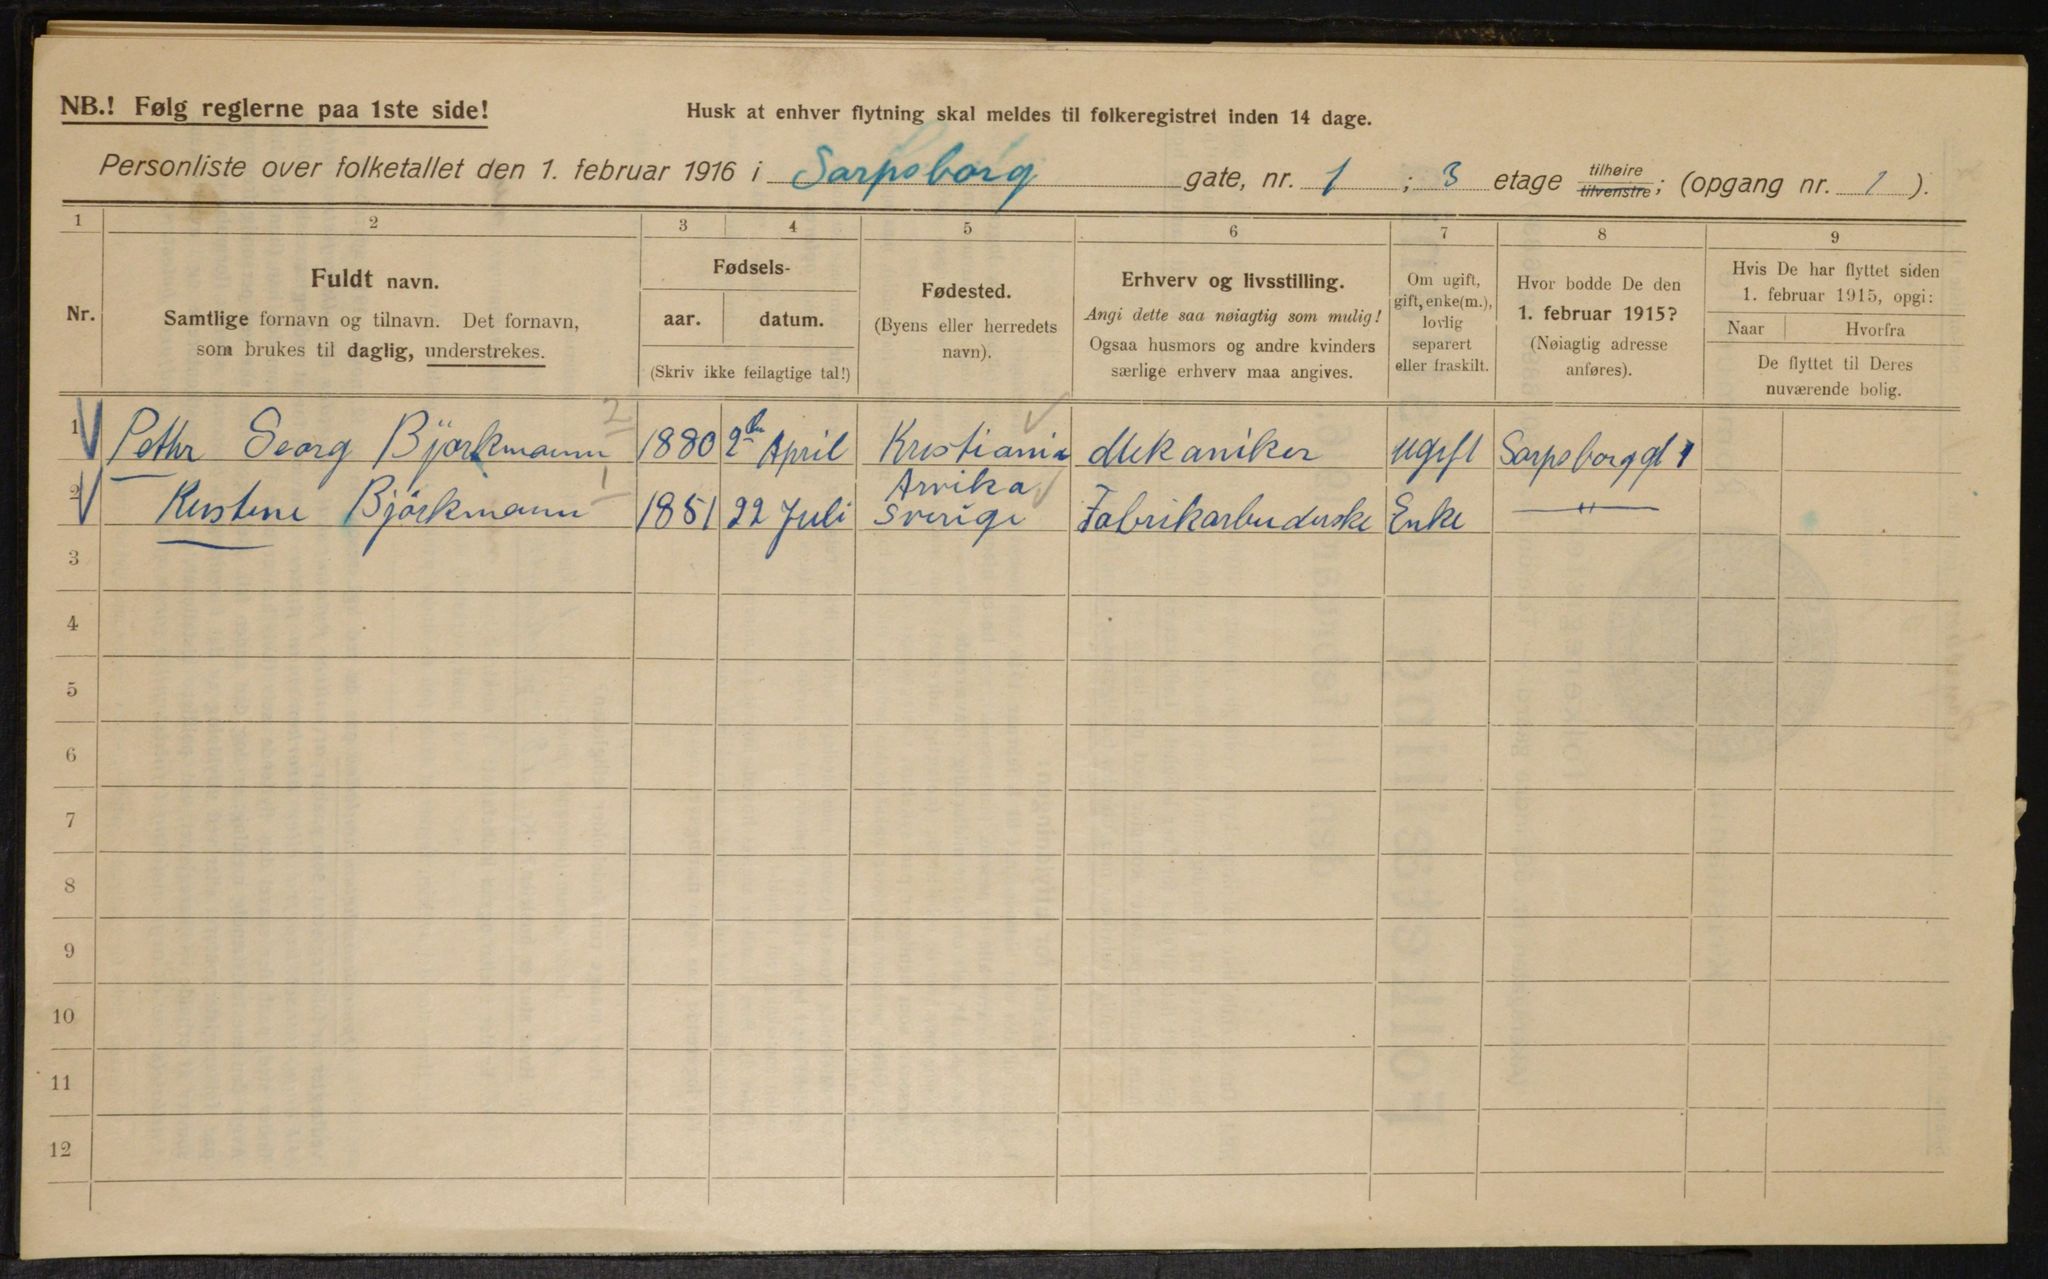 NB.! Følg reglerne paa 1ste side!
Husk at enhver flytning skal meldes til folkeregistret inden 14 dage.
Personliste over folketallet den 1. februar 1916 i Sarpsborg gate, nr. 1 ; 3 etage tilhøire tilvenstre; (opgang nr. 1 ).
1 2 3 4 5 6 7 8 9
Nr.
Fuldt navn.
Samtlige fornavn og tilnavn. Det fornavn,
som brukes til daglig, understrekes.
Fødsels-
aar. datum.
(Skriv ikke feilagtige tal!)
Fødested.
(Byens eller herredets
navn).
Erhverv og livsstilling.
Angi dette saa nøiagtig som mulig!
Ogsaa husmors og andre kvinders
særlige erhverv maa angives.
Om ugift,
gift, enke(m.),
lovlig
separert
eller fraskilt.
Hvor bodde De den
1. februar 1915?
(Nøiagtig adresse
anføres).
Hvis De har flyttet siden
1. februar 1915, opgi:
Naar Hvorfra
De flyttet til Deres
nuværende bolig.
1 Pethr Georg Björkmann 2 1880 2den April Kristiania Mekaniker ugift Sarpsborggt 1
2 Kristene Björkmann 1 1851 22 Juli Arvika Sverige Fabrikarbuderske Enke — " —
3
4
5
6
7
8
9
10
11
12